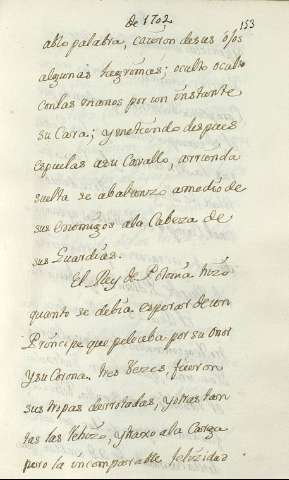 de 1702
153
ablo palabra, caieron desus ojos
algunas lagrimas; oculto
conlas manos por un instante
su Cara; y metiendo despues
espuelas asu Cavallo, arrienda
suelta se abalanzo amedio de
sus enemigos ala Cabeza de
sus Guardias.
El Rey de Polonia hizo
quanto se debia esperar de un
Principe que peleaba por su Onor
Y su Corona. tres Vezes, fueron
sus tropas derrotadas, y otras tan
tas las rehizo, y traxo ala Carga
pero la incomparable felicidad